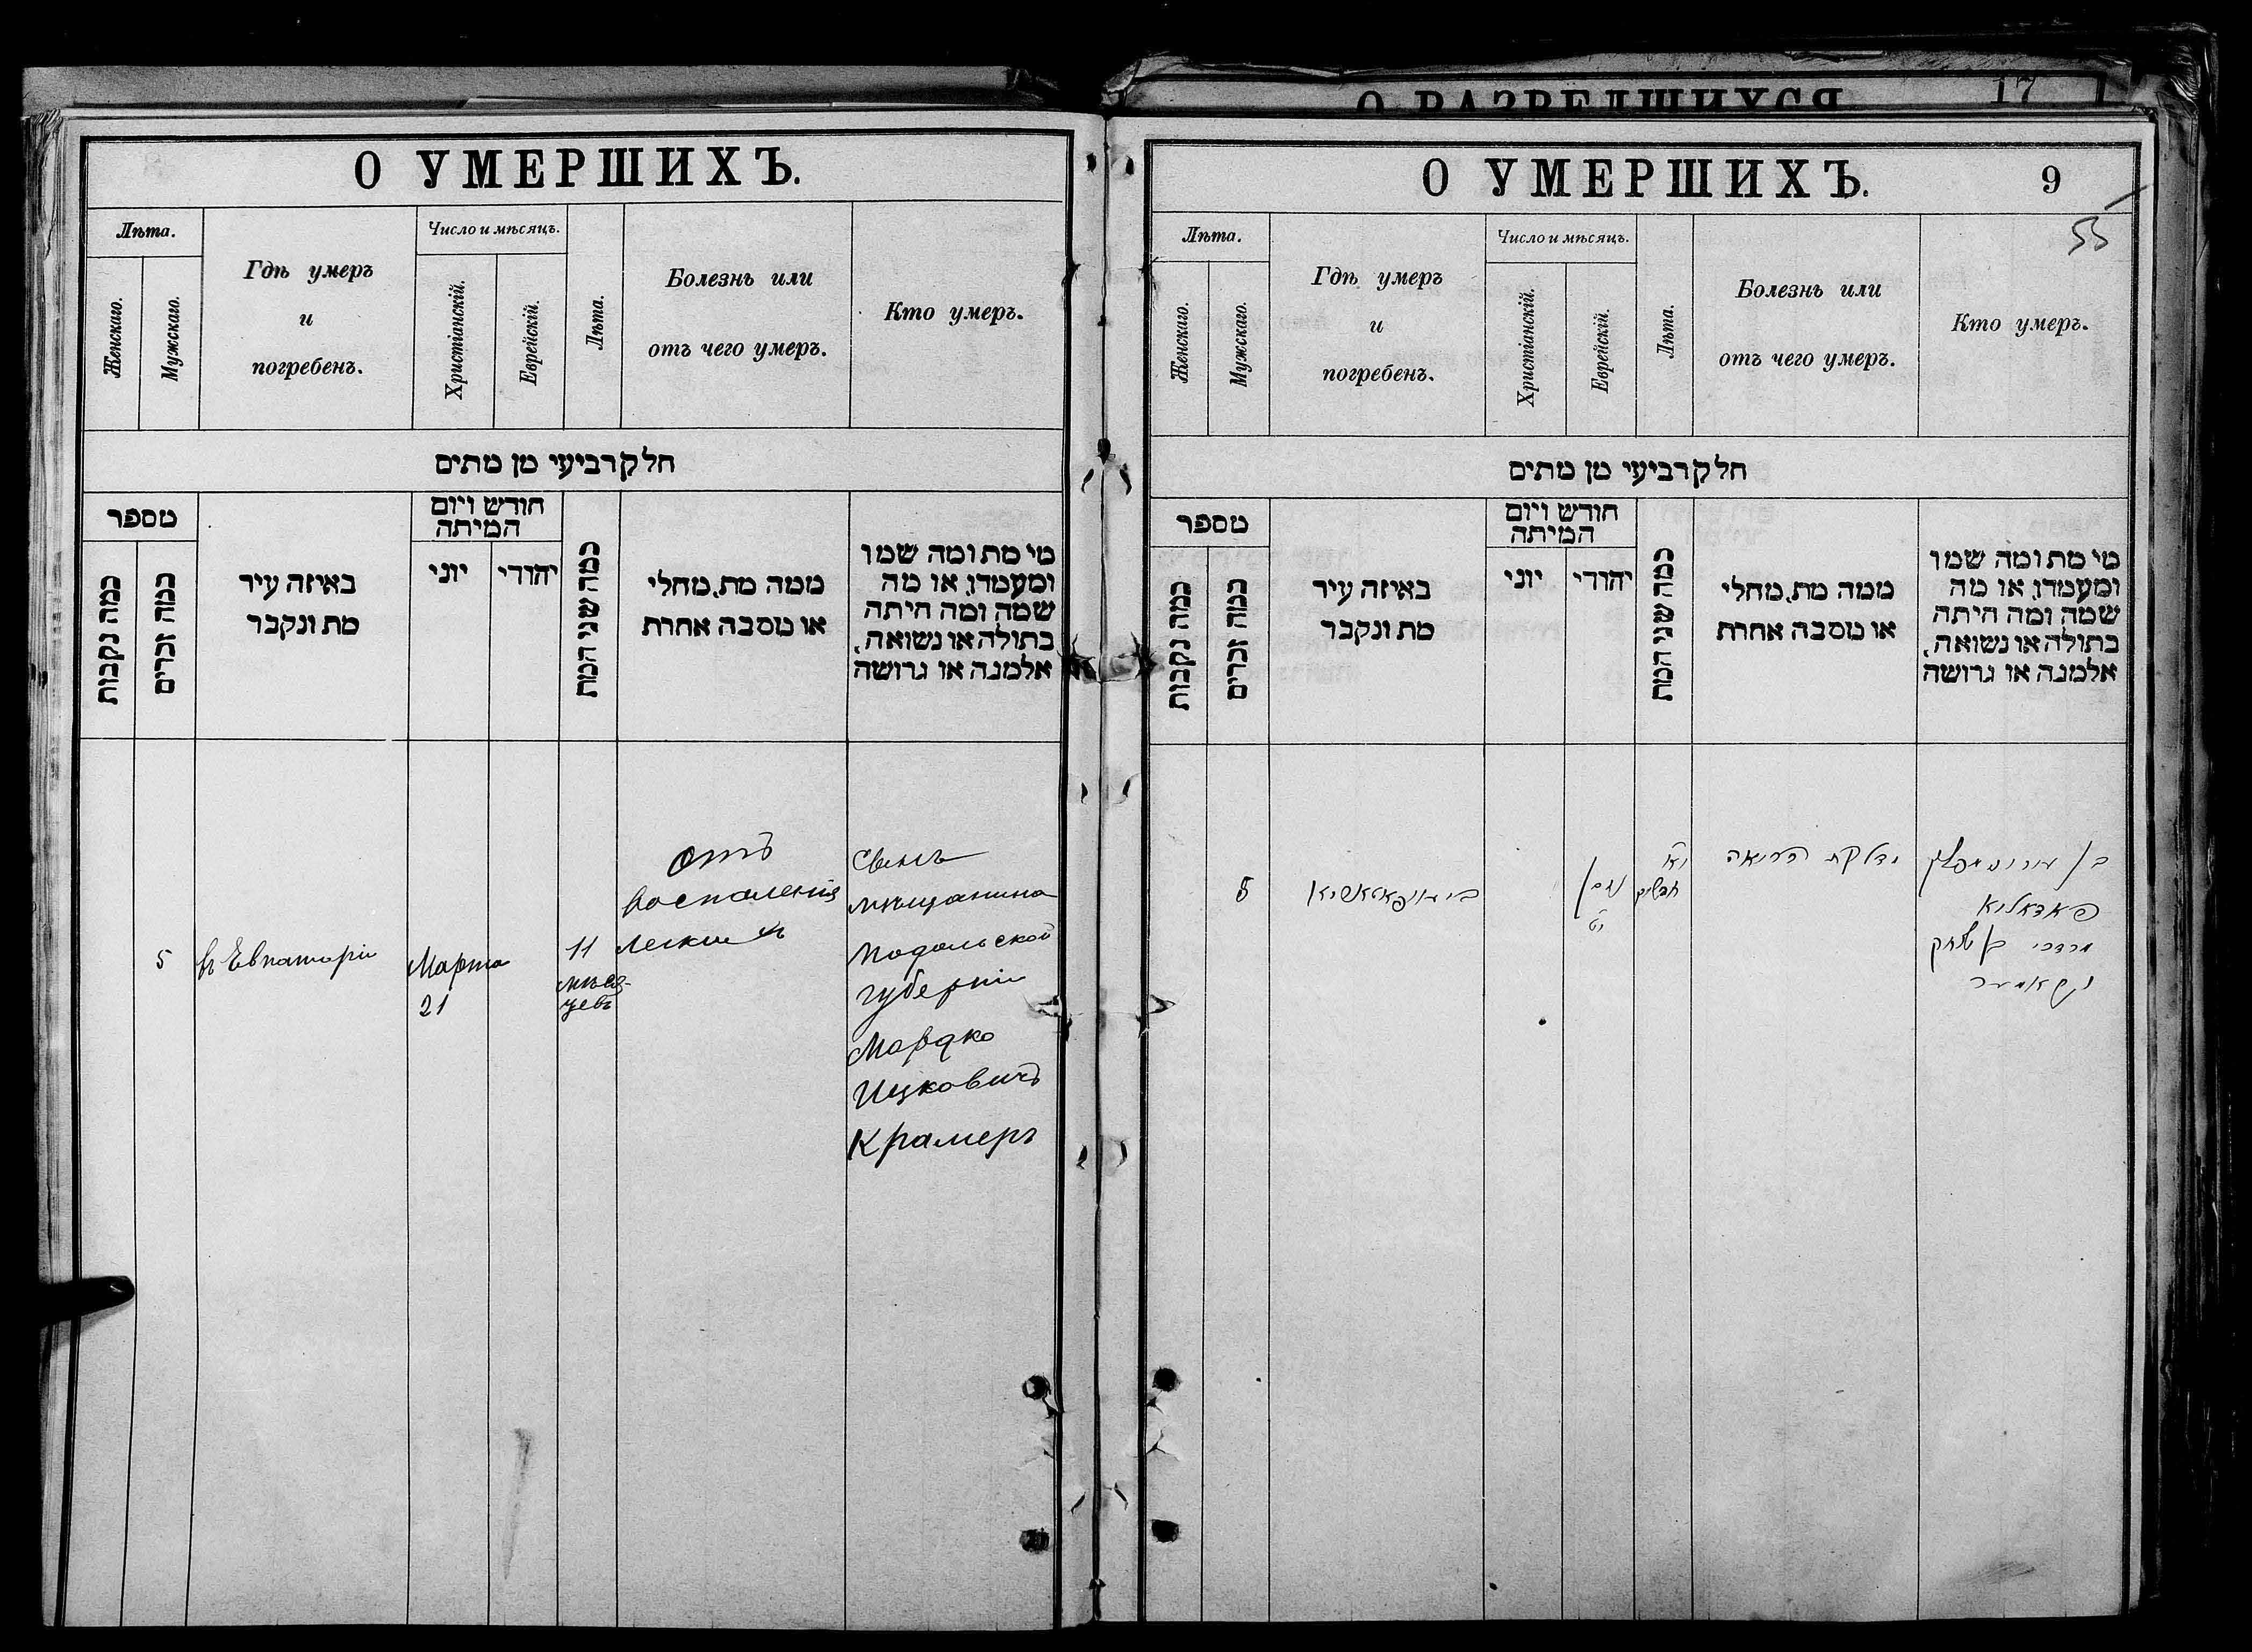 О РАЗВЕДШИХСЯ
17
О УМЕРШИХЪ.
Лѣта.
Женскаго.
Мужскаго.
Гдѣ умеръ
и
погребенъ.
Число и мѣсяцъ.
Христіанскій.
Еврейскій.
Лѣта.
Болезнь или
отъ чего умеръ.
Кто умеръ.
חלק רביעי מן מתים
מספר
כמה נקבות
כמה זכרים
באיזה עיר
מת ונקבר
חודש ויום
המיתה
יוני
יהודי
כמה שני המת
ממה מת, מחלי
או מסבה אחרת
מי מת ומה שמו
ומעמדו, או מה
שמה ומה היתה
בתולה או נשואה,
אלמנה או גרושה
5
въ Евпаторіи
Марта
21
11
мѣся-
цевъ
отъ
воспаленія
легкихъ
Сынъ
мѣщанина
Подольской
губерніи
Мордко
Ицковичъ
Крамеръ
О УМЕРШИХЪ.
9
55
Лѣта.
Женскаго.
Мужскаго.
Гдѣ умеръ
и
погребенъ.
Число и мѣсяцъ.
Христіанскій.
Еврейскій.
Лѣта.
Болезнь или
отъ чего умеръ.
Кто умеръ.
חלק רביעי מן מתים
מספר
כמה נקבות
כמה זכרים
באיזה עיר
מת ונקבר
חודש ויום
המיתה
יוני
יהודי
כמה שני המת
ממה מת, מחלי
או מסבה אחרת
מי מת ומה שמו
ומעמדו, או מה
שמה ומה היתה
בתולה או נשואה,
אלמנה או גרושה
5
ניסן
י"א
חדשים
מדלקת הריאה
בן
פאדאליא
מרדכי בן יצחק
קראמער